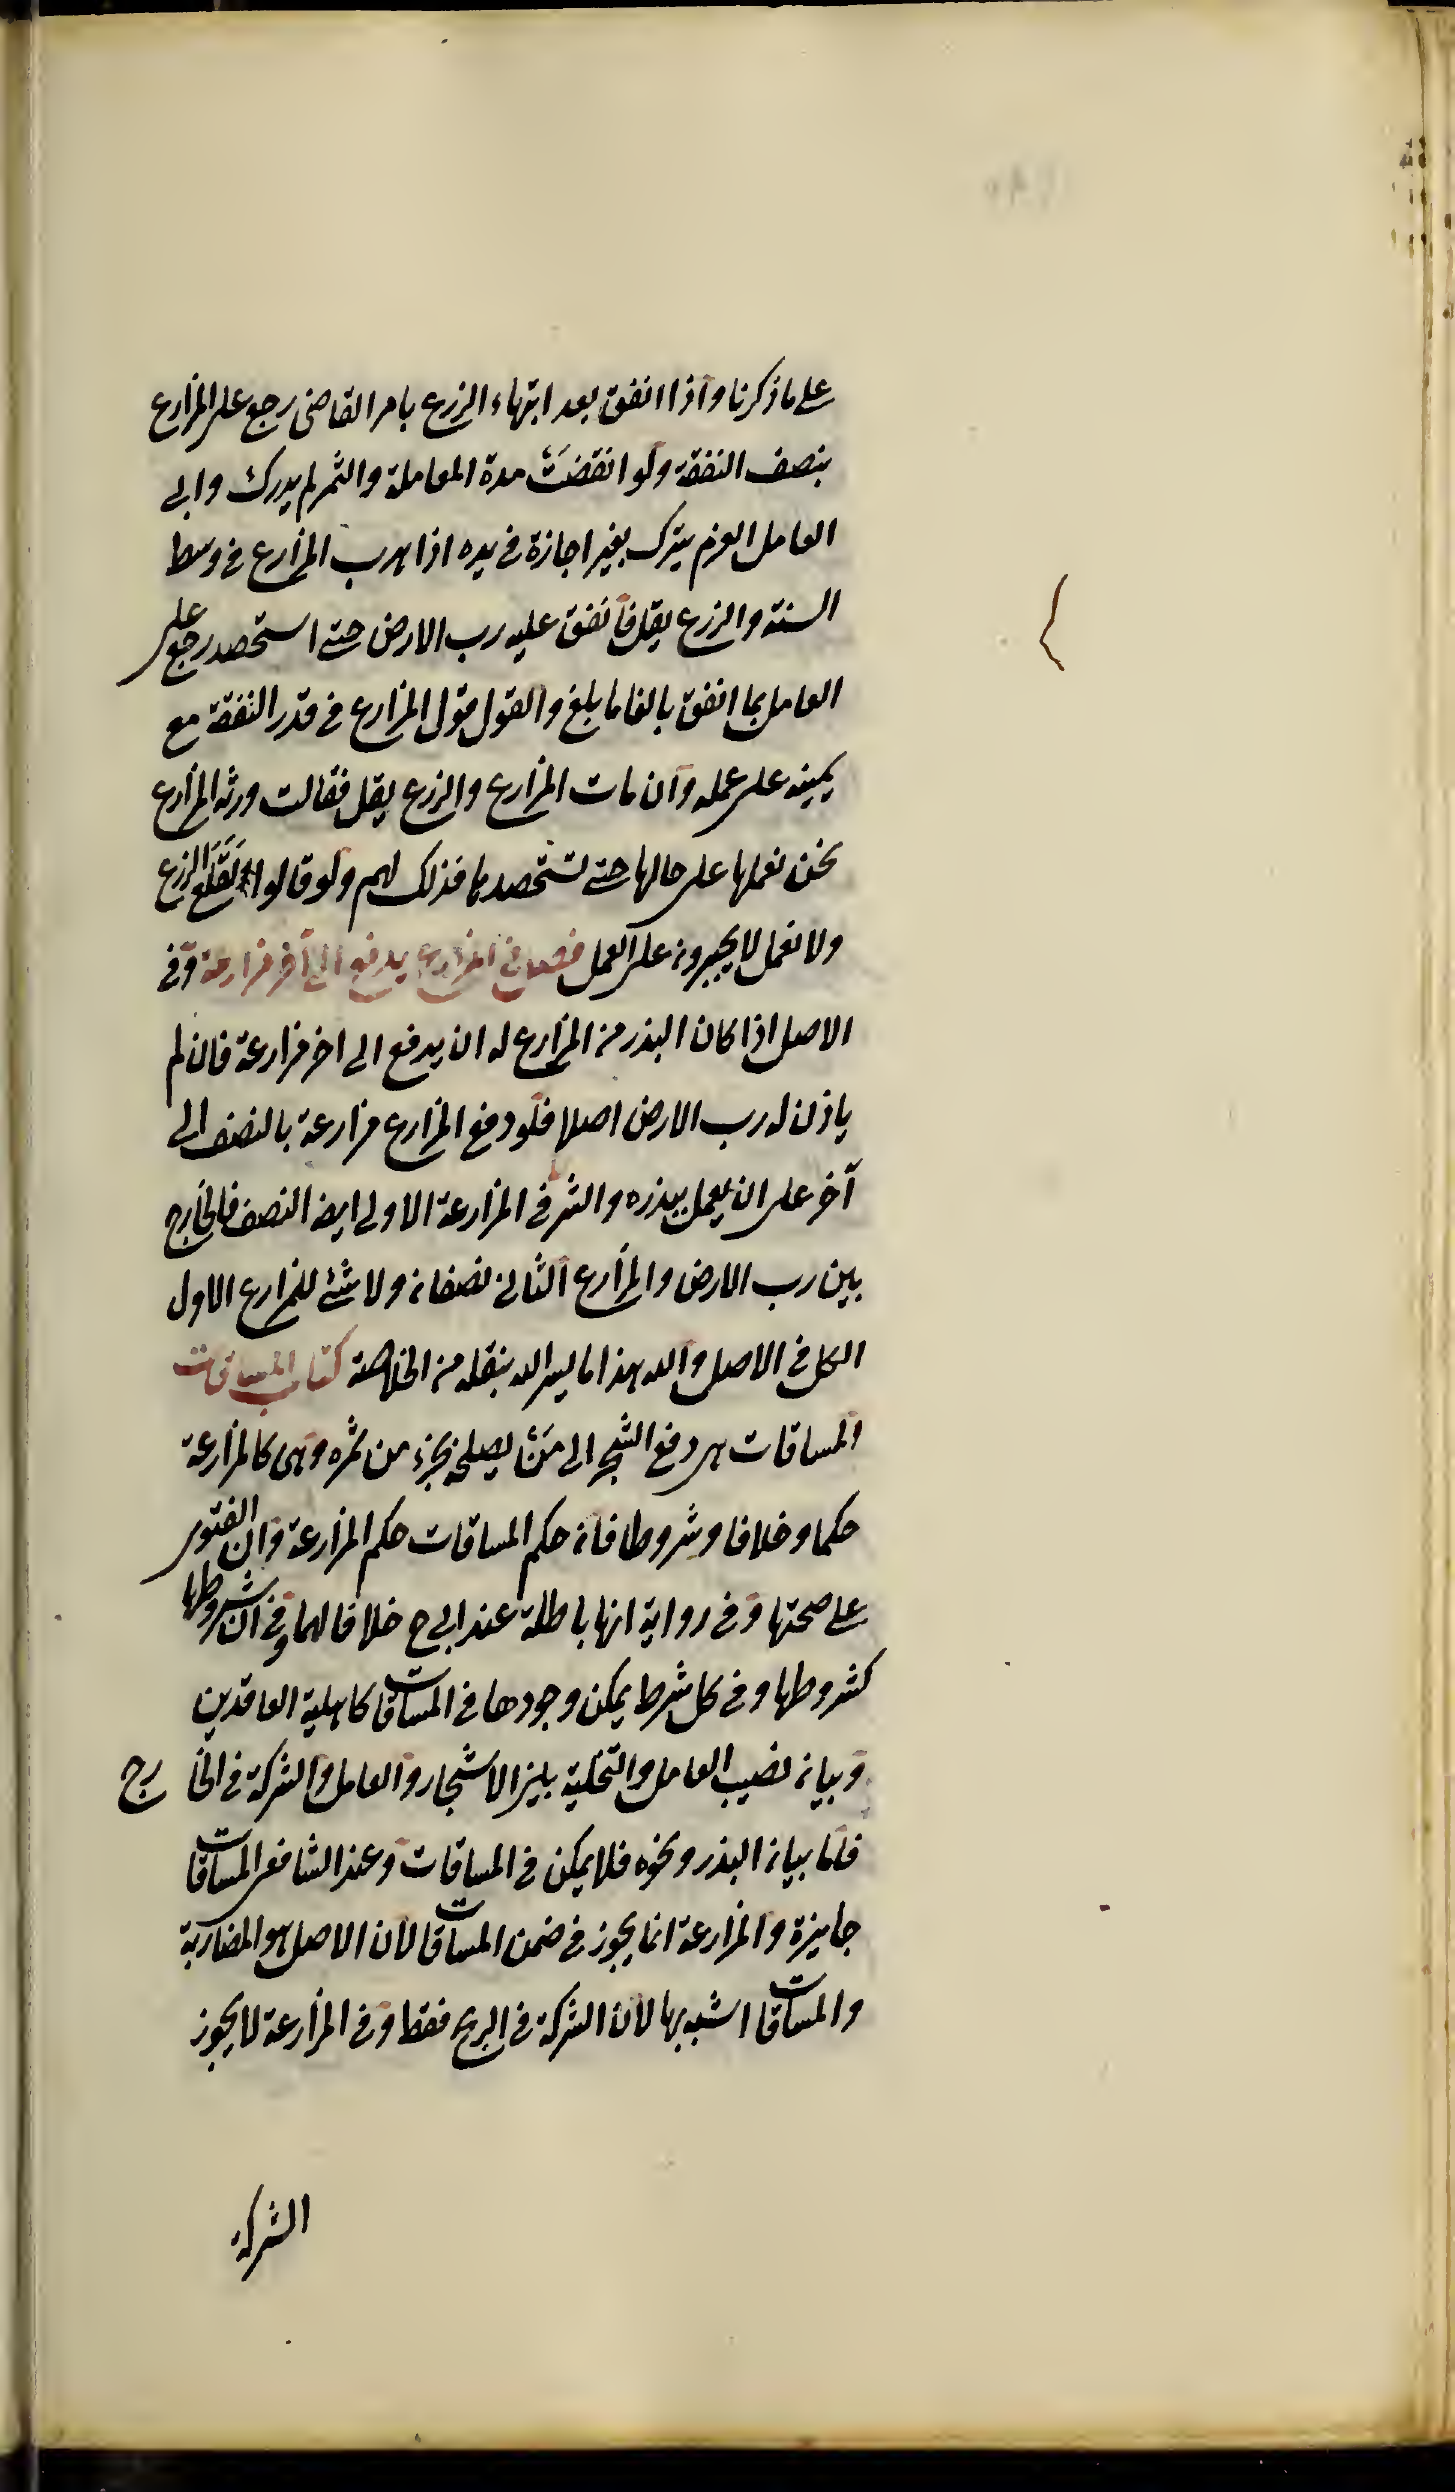 على ما ذكرنا واذا انفق بعد انتهاء الزرع بامر القاضى رجع على المزارع
بنصف النفقة ولو انقضت مدة المعاملة والثمر لم يدرك وابى
العامل العزم يترك بغير اجازة فى يده اذا هرب المزارع فى وسط
السنة والزرع بقل فانفق عليه رب الارض حتى استحصد رجع على
العامل بما انفق بالغا ما بلغ والقول قول المزارع فى قدر النفقة مع
يمينه على عمله وان مات المزارع والزرع بقل فقالت ورثه المزارع
نحن نعملها على حالها حتى تستحصدها فذلك لهم ولو قالوا نقلع الزرع
ولا نعمل لا يجبرون على العمل فصل فى المزارع يدفع الى آخر مزارعة وفى
الاصل اذا كان البذر من المزارع له ان يدفع الى اخر مزارعة فان لم
ياذن له رب الارض اصلا فلو دفع المزارع مزارعة بالنصف الى
آخر على ان يعمل ببذره والشرط فى المزارعة الاولى ايضا النصف فالخارج
بين رب الارض والمزارع الثانى نصفان ولا شئ للمزارع الاول
الكل فى الاصل والله هذا ما يسر الله بنقله من الخلاصة كتاب المساقات
المساقات هى دفع الشجر الى من يصلحه بجزء من ثمره وهى كالمزارعة
حكما وخلافا وشروطا فان حكم المساقات حكم المزارعة وان الفتوى
على صحتها وفى رواية انها باطلة عند ابى ح خلافا لهما وفى ان شروطها
كشروطها وفى كل شرط يمكن وجودها فى المساقات كاهلية العاقدين
وبيان نصيب العامل والتخلية بين الاشجار والعامل والشركة فى الخارج
فاما بيان البذر ونحوه فلا يمكن فى المساقات وعند الشافعى المساقات
جايزة والمزارعة انما يجوز فى ضمن المساقات لان الاصل هو المضاربة
والمساقات اشبه بها لان الشركة فى الربح فقط وفى المزارعة لا يجوز
الشركة